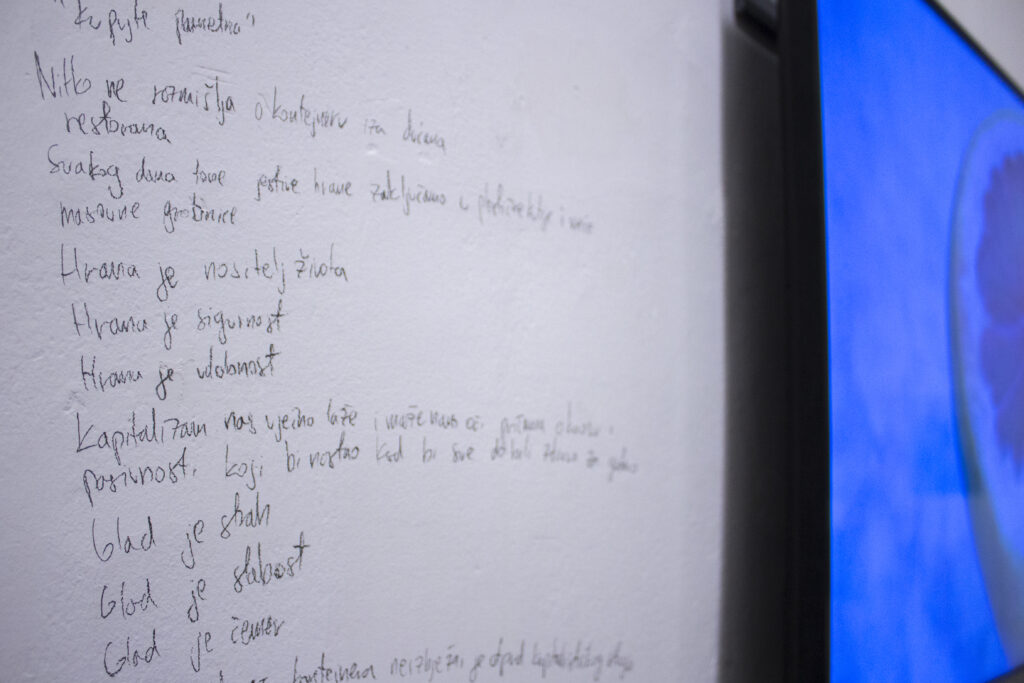 "Kupujte pametno"
Nitko ne razmišlja o kontejneru iza dućana
restorana
Svakog dana tone jestive hrane zaključamo u plastične kutije i
masovne grobnice
Hrana je nositelj života
Hrana je sigurnost
Hrana je udobnost
Kapitalizam nas vječno laže i maže nam oči
pasivnosti koji bi nestao kad bi sve dobili
Glad je strah
Glad je slabost
Glad je čemer
kontejnera neizbježan je otpad kapitalističkog